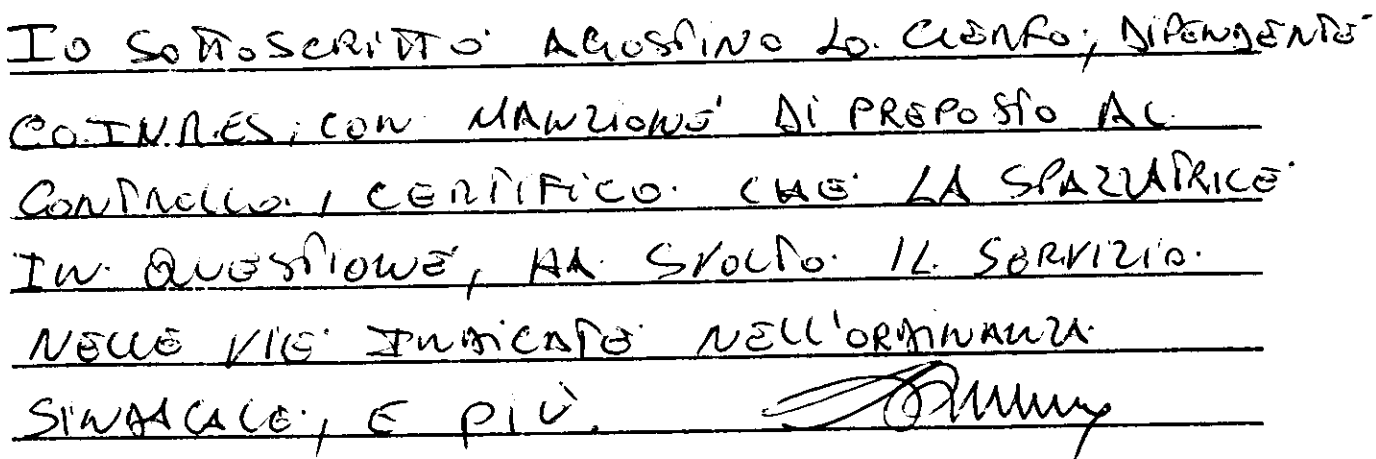 IO SOTTOSCRITTO AGOSTINO LO CIENFO, DIPENDENTE
CO.IN.R.ES, CON MANZIONE DI PREPOSTO AL
CONTROLLO, CERTIFICO CHE LA SPAZZATRICE
IN QUESTIONE, HA SVOLTO IL SERVIZIO
NELLE VIE INDICATE NELL'ORDINANZA
SINDACALE, E PIÙ.